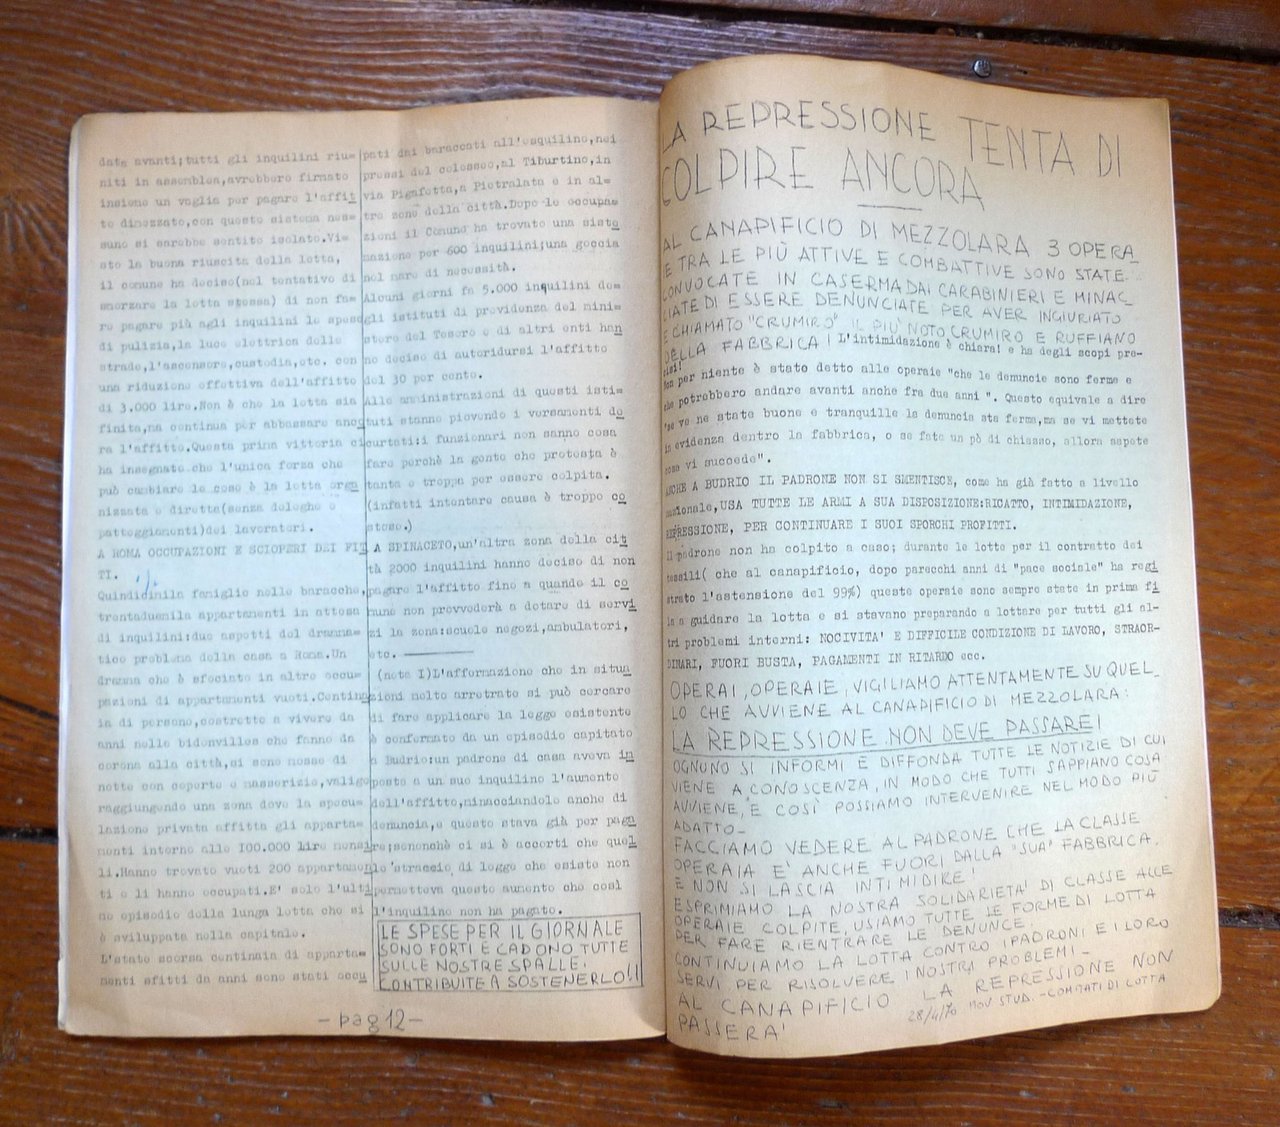 date avanti;tutti gli inquilini riu=
niti in assemblea,avrebbero firmato
insieme un vaglia per pagare l'affit
to dimezzato,con questo sistema nes=
suno si sarebbe sentito isolato.Vi=
sto la buona riuscita della lotta,
il comune ha deciso(nel tentativo di
smorzare la lotta stessa) di non fa=
re pagare più agli inquilini le spese
di pulizia,la luce elettrica delle
strade,l'ascensore,custodia,etc. con
una riduzione effettiva dell'affitto
di 3.000 lire.Non è che la lotta sia
finita,ma continua per abbassare anco
ra l'affitto.Questa prima vittoria ci
ha insegnato che l'unica forza che
può cambiare le cose è la lotta orga
nizzata e diretta(senza deleghe o
patteggiamenti)dei lavoratori.
A ROMA OCCUPAZIONI E SCIOPERI DEI FIT
TI.
Quindicimila famiglie nelle baracche,
trentaduemila appartamenti in attesa
di inquilini:due aspetti del dramma=
tico problema della casa a Roma.Un
dramma che è sfociato in altre occu=
pazioni di appartamenti vuoti.Centina
ia di persone,costrette a vivere da
anni nelle bidonvilles che fanno da
corona alla città,si sono mosse di
notte con coperte e masserizie,valige
raggiungendo una zona dove la specu=
lazione privata affitta gli apparta=
menti interno alle 100.000 lire mensi
li.Hanno trovato vuoti 200 appartamen
ti e li hanno occupati.E' solo l'ulti
mo episodio della lunga lotta che si
è sviluppata nella capitale.
L'estate scorsa centinaia di apparta=
menti sfitti da anni sono stati occu
pati dai baraccati all'esquilino,nei
pressi del colosseo,al Tiburtino,in
via Pigafetta,a Pietralata e in al=
tre zone della città.Dopo le occupa=
zioni il Comune ha trovato una siste
mazione per 600 inquilini;una goccia
nel mare di necessità.
Alcuni giorni fa 5.000 inquilini de=
gli istituti di previdenza del mini=
stero del Tesoro e di altri enti han
no deciso di autoridursi l'affitto
del 30 per cento.
Alle amministrazioni di questi isti=
tuti stanno piovendo i versamenti de
curtati:i funzionari non sanno cosa
fare perchè la gente che protesta è
tanta e troppa per essere colpita.
(infatti intentare causa è troppo co
stoso.)
A SPINACETO,un'altra zona della cit
tà 2000 inquilini hanno deciso di non
pagare l'affitto fino a quando il co
mune non provvederà a dotare di servi
zi la zona:scuole negozi,ambulatori,
etc.
(nota I)L'affermazione che in situa
zioni molto arretrate si può cercare
di fare applicare la legge esistente
è confermato da un episodio capitato
a Budrio:un padrone di casa aveva im
posto a un suo inquilino l'aumento
dell'affitto,minacciandolo anche di
denuncia,e questo stava già per paga
re;senonchè ci si è accorti che quel
lo'straccio di legge che esiste non
permetteva questo aumento che così
l'inquilino non ha pagato.
LE SPESE PER IL GIORNALE
SONO FORTI E CADONO TUTTE
SULLE NOSTRE SPALLE.
CONTRIBUITE A SOSTENERLO!!
- pag 12 -
LA REPRESSIONE TENTA DI
COLPIRE ANCORA
AL CANAPIFICIO DI MEZZOLARA 3 OPERA
IE TRA LE PIÙ ATTIVE E COMBATTIVE SONO STATE
CONVOCATE IN CASERMA DAI CARABINIERI E MINAC_
CIATE DI ESSERE DENUNCIATE PER AVER INGIURIATO
E CHIAMATO "CRUMIRO" IL PIÙ NOTO CRUMIRO E RUFFIANO
DELLA FABBRICA! L'intimidazione è chiara! e ha degli scopi pre-
cisi!
Non per niente è stato detto alle operaie "che le denuncie sono ferme e
che potrebbero andare avanti anche fra due anni ". Questo equivale a dire
"se ve ne state buone e tranquille la denuncia sta ferma,ma se vi mettete
in evidenza dentro la fabbrica, o se fate un pò di chiasso, allora sapete
cosa vi succede".
ANCHE A BUDRIO IL PADRONE NON SI SMENTISCE, come ha già fatto a livello
nazionale,USA TUTTE LE ARMI A SUA DISPOSIZIONE:RICATTO, INTIMIDAZIONE,
REPRESSIONE, PER CONTINUARE I SUOI SPORCHI PROFITTI.
Il padrone non ha colpito a caso; durante le lotte per il contratto dei
tessili( che al canapificio, dopo parecchi anni di "pace sociale" ha regi
strato l'astensione del 99%) queste operaie sono sempre state in prima fi
la a guidare la lotta e si stavano preparando a lottare per tutti gli al-
tri problemi interni: NOCIVITA' E DIFFICILE CONDIZIONE DI LAVORO, STRAOR-
DINARI, FUORI BUSTA, PAGAMENTI IN RITARDO ecc.
OPERAI, OPERAIE, VIGILIAMO ATTENTAMENTE SU QUEL_
LO CHE AVVIENE AL CANAPIFICIO DI MEZZOLARA:
LA REPRESSIONE NON DEVE PASSARE!
OGNUNO SI INFORMI E DIFFONDA TUTTE LE NOTIZIE DI CUI
VIENE A CONOSCENZA, IN MODO CHE TUTTI SAPPIANO COSA
AVVIENE, E COSÌ POSSIAMO INTERVENIRE NEL MODO PIÙ
ADATTO-
FACCIAMO VEDERE AL PADRONE CHE LA CLASSE
OPERAIA E' ANCHE FUORI DALLA "SUA" FABBRICA.
E NON SI LASCIA INTIMIDIRE!
ESPRIMIAMO LA NOSTRA SOLIDARIETA' DI CLASSE ALLE
OPERAIE COLPITE, USIAMO TUTTE LE FORME DI LOTTA
PER FARE RIENTRARE LE DENUNCE.
CONTINUIAMO LA LOTTA CONTRO I PADRONI E I LORO
SERVI PER RISOLVERE I NOSTRI PROBLEMI-
AL CANAPIFICIO LA REPRESSIONE NON
PASSERA'
28/4/70 MOV STUD. - COMITATI DI LOTTA